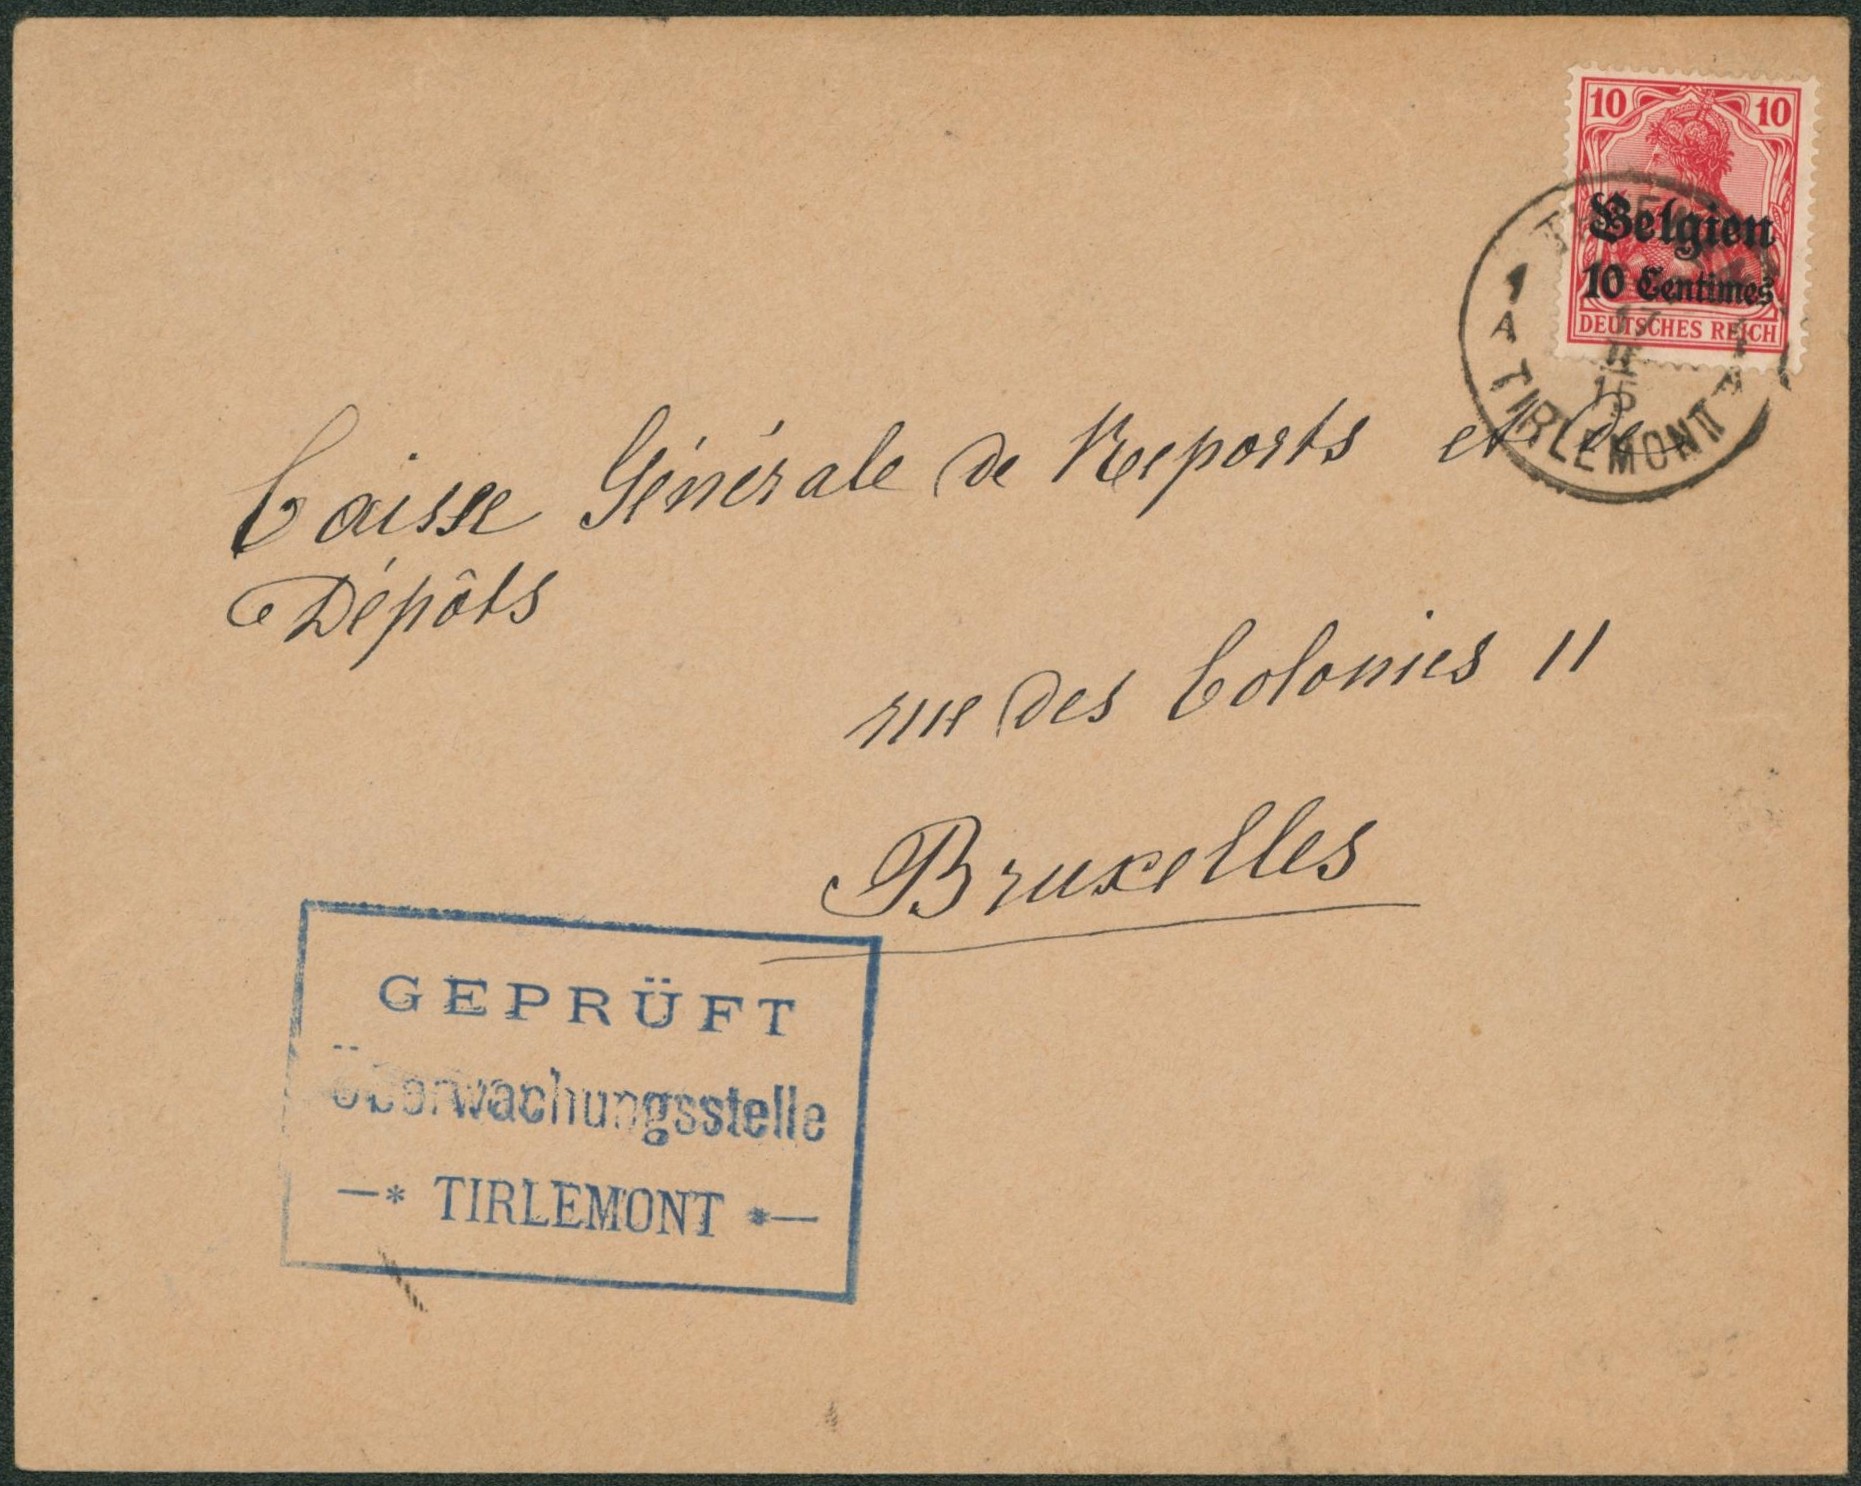 10 10
Belgien
10 Centimes
DEUTSCHES REICH
1 A
17
II
15
TIRLEMONT
Caisse Générale de Reports et de
Dépôts
rue des Colonies 11
Bruxelles
GEPRÜFT
Überwachungsstelle
—* TIRLEMONT *—